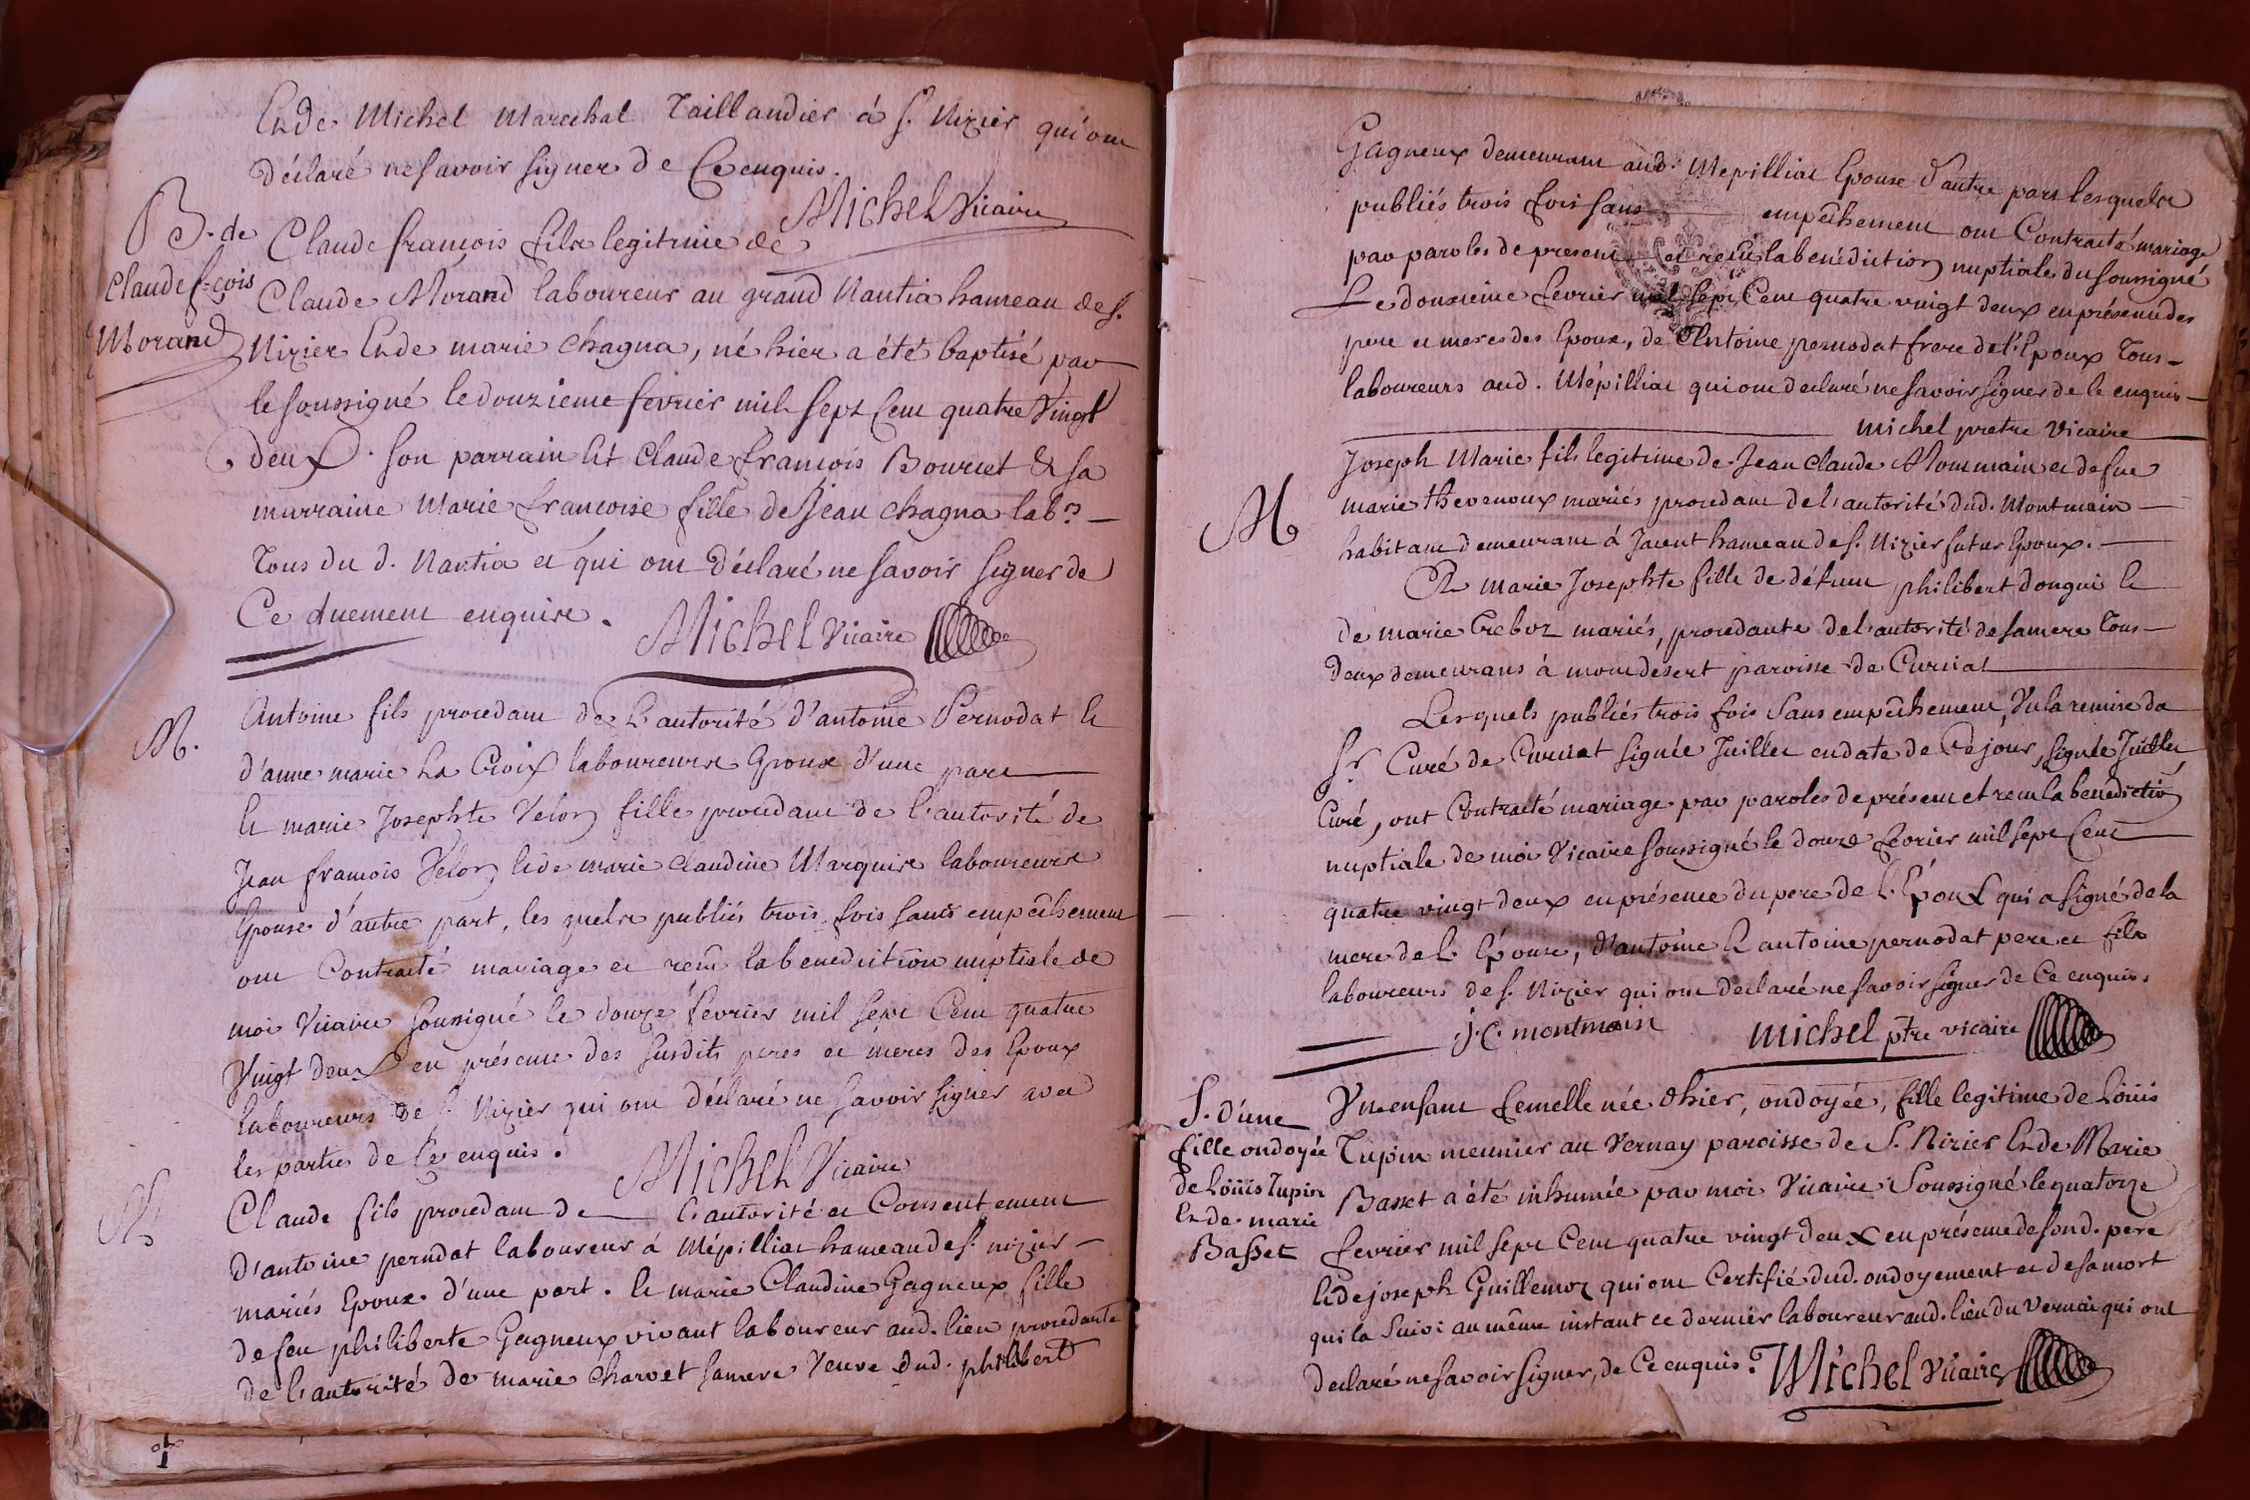 Et de Michel Marechal Taillandier á S. Nizier qui ont
déclaré ne savoir signer de Ce enquis.
Michel Vicaire
B. de
Claude f=çois
Morand
Claude francois fils legitime de
Claude Morand laboureur au grand Nantia hameau de S.
Nizier Et de marie Chagna, né hier a été baptisé par
le soussigné le douzieme fevrier mil sept Cent quatre Vingt
deux. son parrain Et Claude francois Bourcet & sa
marraine Marie francoise fille de Jean Chagna labr.
Tous du d. Nantia et qui ont déclaré ne savoir signer de
Ce duement enquise.
Michel Vicaire
M.
Antoine fils procedant de L'autorité d'antoine Pernodat Et
d'anne marie La Croix laboureurs Epoux d'une part
Et marie Josephte Velon fille procedant de l'autorité de
Jean francois Velon Et de marie Claudine Marquise laboureurs
Epouse d'autre part, les quels publiés trois fois sans empêchement
ont Contracté mariage et recu la benediction nuptiale de
moi Vicaire soussigné le douze fevrier mil sept Cent quatre
Vingt deux en présence des susdits peres et meres des Epoux
laboureurs de S. Nizier qui ont déclaré ne savoir signer avec
les parties de Ce enquis.
Michel Vicaire
M
Claude fils procedant de l'autorité et Consentement
d'antoine perndat laboureur á Mépilliat hameau de S. nizier
mariés Epoux d'une part. Et marie Claudine Gagneux fille
de feu philiberte Gagneux vivant laboureur aud. lieu procedante
de l'autorité de marie Charvet sa mere Veuve dud. philibert
Gagneux demeurant aud. Mepilliat Epouse d'autre part lesquels
publiés trois fois sans empêchement ont Contracté mariage
par paroles de present et recu la benédiction nuptiale du soussigné
Le douzieme fevrier mil sept Cent quatre vingt deux en présence des
pere et meres des Epoux, de Antoine pernodat frere de l'Epoux Tous
laboureurs aud. Mépilliat qui ont declaré ne savoir signer de Ce enquis
michel pretre Vicaire
M
Joseph Marie fils legitime de Jean Claude Montmain et de feue
marie thevenoux mariés procedant de l'autorité dud. Montmain
habitant demeurant á Jacent hameau de S. Nizier futur Epoux.
Et marie Josephte fille de défunt philibert dongui Et
de marie Creboz mariés, procedante de l'autorité de sa mere Tous
deux demeurans á mondésert paroisse de Curciat
Lesquels publiés trois fois sans empêchement, Vu la remise du
Sr. Curé de Curciat signée Juillet en date de Ce jour, signée Juillet
Curé, ont Contracté mariage par paroles de présent et recu la benediction
nuptiale de moi Vicaire soussigné le douze fevrier mil sept Cent
quatre vingt deux en présence du pere de l'Epoux qui a signé de la
mere de L'Epouse, d'antoine & antoine pernodat pere et fils
laboureurs de S. Nizier qui ont declaré ne savoir signer de Ce enquis.
j.c. montmain
michel ptre vicaire
S. d'une
fille ondoyée
de Loüis Tupin
Et de marie
Basset
Un enfant femelle née d'hier, ondoyée, fille legitime de Loüis
Tupin meunier au Vernay paroisse de S. Nizier Et de Marie
Basset a été inhumée par moi Vicaire Soussigné le quatorze
fevrier mil sept Cent quatre vingt deux en présence de sond. pere
Et de joseph Guillemoz qui ont Certifié dud. ondoyement et de sa mort
qui la suivi au même instant ce dernier laboureur aud. lieu du Vernai qui ont
declaré ne savoir signer, de Ce enquis.
Michel Vicaire